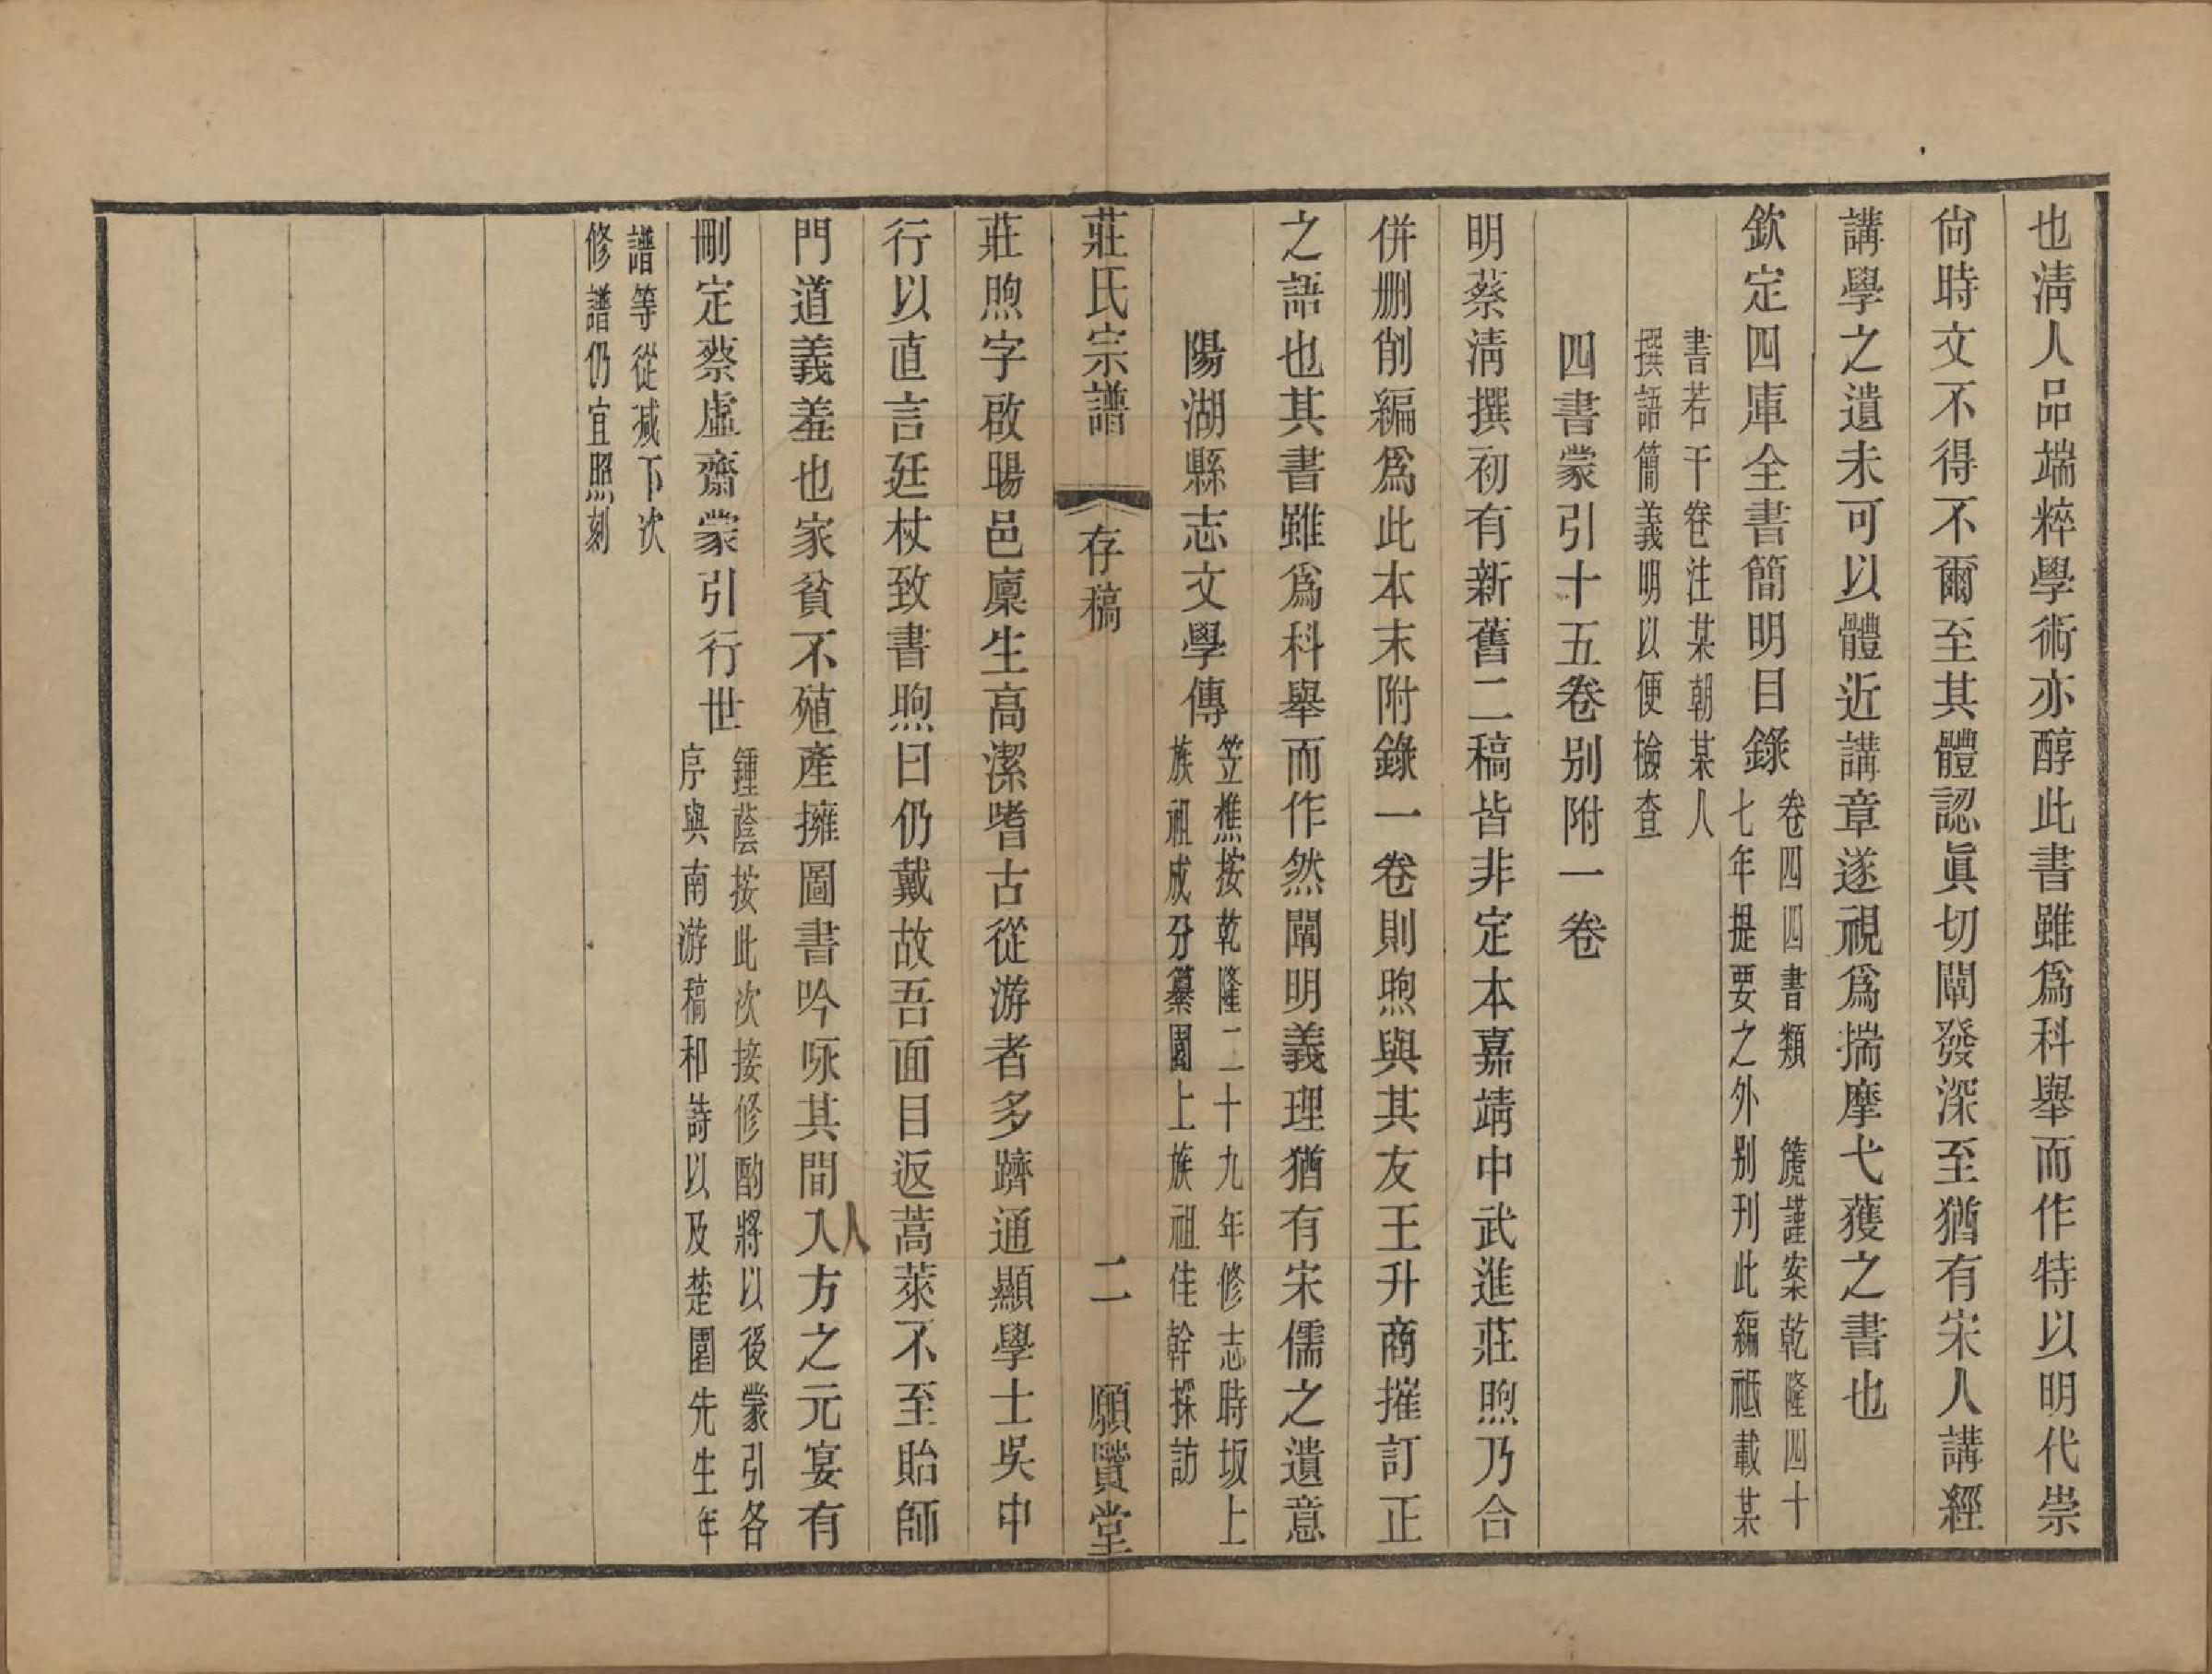 也淸人品端粹學術亦醇此書雖爲科舉而作特以明代崇
尙時文不得不爾至其體認眞切闡發深至猶有宋人講經
講學之遺未可以體近講章遂視爲揣摩弋獲之書也
欽定四庫全書簡明目錄
卷四四書類　箎謹案乾隆四十
七年提要之外别刊此編祗載某
書若干卷注某朝某人
撰語簡義明以便檢查
四書蒙引十五卷别附一卷
明蔡淸撰初有新舊二稿皆非定本嘉靖中武進莊煦乃合
併删削編爲此本末附錄一卷則煦與其友王升商搉訂正
之語也其書雖爲科舉而作然闡明義理猶有宋儒之遺意
陽湖縣志文學傳
笠樵按乾隆二十九年修志時坂上
族祖成分纂園上族祖佳幹採訪
莊氏宗譜
存稿
二
願賢堂
莊煦字啟暘邑廩生高潔嗜古從游者多躋通顯學士吳中
行以直言廷杖致書煦曰仍戴故吾面目返蒿萊不至貽師
門道義羞也家貧不殖產擁圖書吟咏其間入方之元宴有
人
刪定蔡虛齋蒙引行世
鍾蔭按此次接修酌將以後蒙引各
序與南游稿和詩以及楚圍先生年
譜等從减下次
修譜仍宜照刻